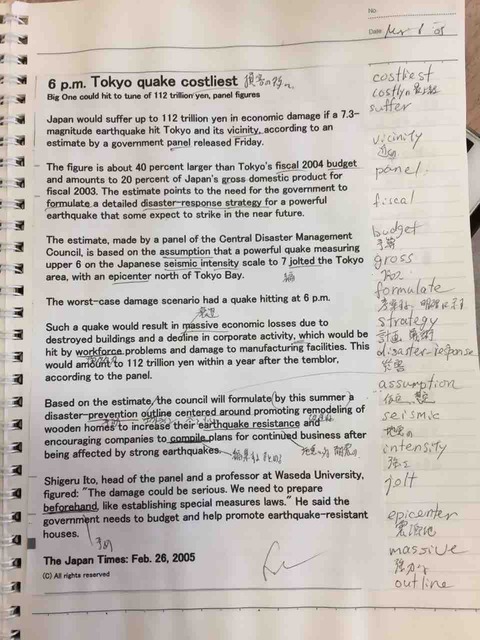 No.
Date
6 p.m. Tokyo quake costliest
Big One could hit to tune of 112 trillion yen, panel figures
Japan would suffer up to 112 trillion yen in economic damage if a 7.3-
magnitude earthquake hit Tokyo and its vicinity, according to an
estimate by a government panel released Friday.
The figure is about 40 percent larger than Tokyo's fiscal 2004 budget
and amounts to 20 percent of Japan's gross domestic product for
fiscal 2003. The estimate points to the need for the government to
formulate a detailed disaster-response strategy for a powerful
earthquake that some expect to strike in the near future.
The estimate, made by a panel of the Central Disaster Management
Council, is based on the assumption that a powerful quake measuring
upper 6 on the Japanese seismic intensity scale to 7 jolted the Tokyo
area, with an epicenter north of Tokyo Bay.
The worst-case damage scenario had a quake hitting at 6 p.m.
Such a quake would result in massive economic losses due to
destroyed buildings and a decline in corporate activity, which would be
hit by workforce problems and damage to manufacturing facilities. This
would amount to 112 trillion yen within a year after the temblor,
according to the panel.
Based on the estimate the council will formulate by this summer a
disaster-prevention outline centered around promoting remodeling of
wooden homes to increase their earthquake resistance and
encouraging companies to compile plans for continued business after
being affected by strong earthquakes.
Shigeru Ito, head of the panel and a professor at Waseda University,
figured: "The damage could be serious. We need to prepare
beforehand, like establishing special measures laws." He said the
government needs to budget and help promote earthquake-resistant
houses.
The Japan Times: Feb. 26, 2005
(C) All rights reserved
costliest
costly
suffer
vicinity
panel
fiscal
budget
予算
gross
formulate
strategy
計画 戦術
disaster-response
災害
assumption
仮定 想定
seismic
地震の
intensity
強さ
jolt
epicenter
震源地
massive
強力な
outline